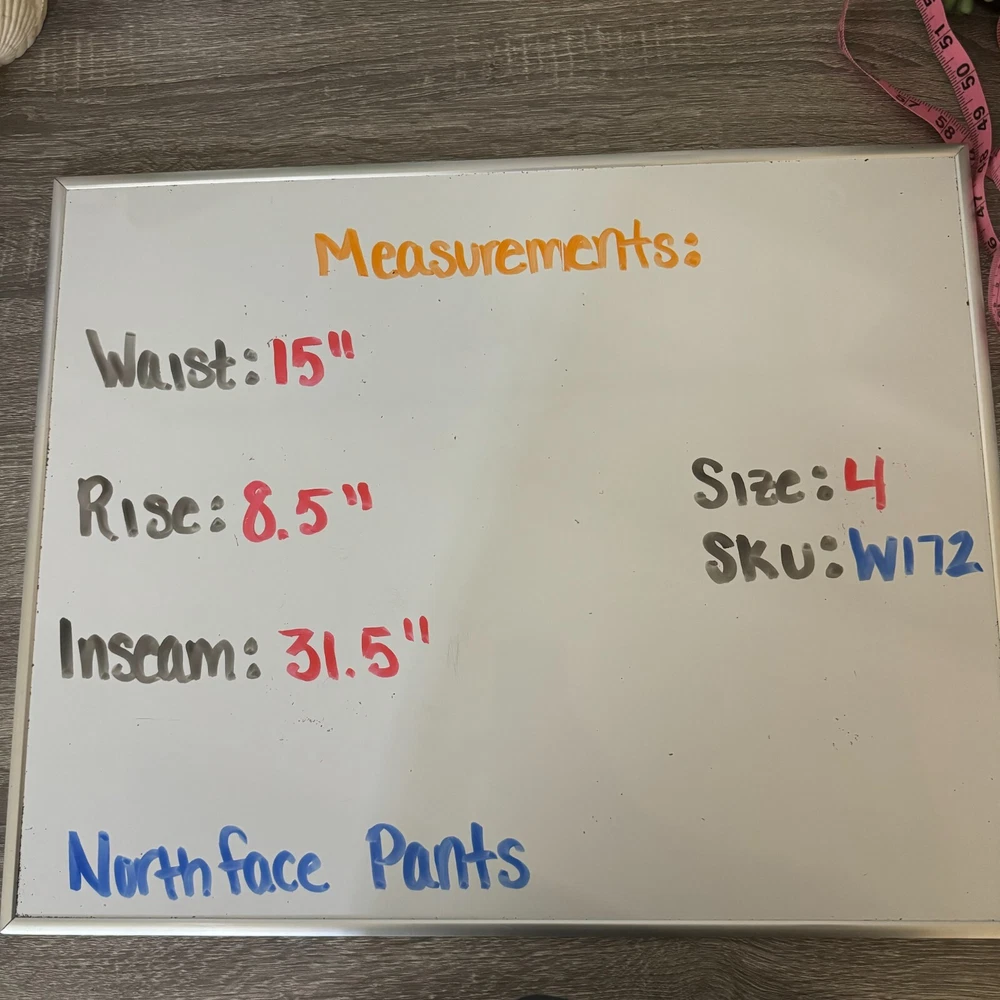 Measurements:
Waist: 15"
Rise: 8.5"
Inseam: 31.5"
Size: 4
SKU: W172
Northface Pants
51
50
49
58
47